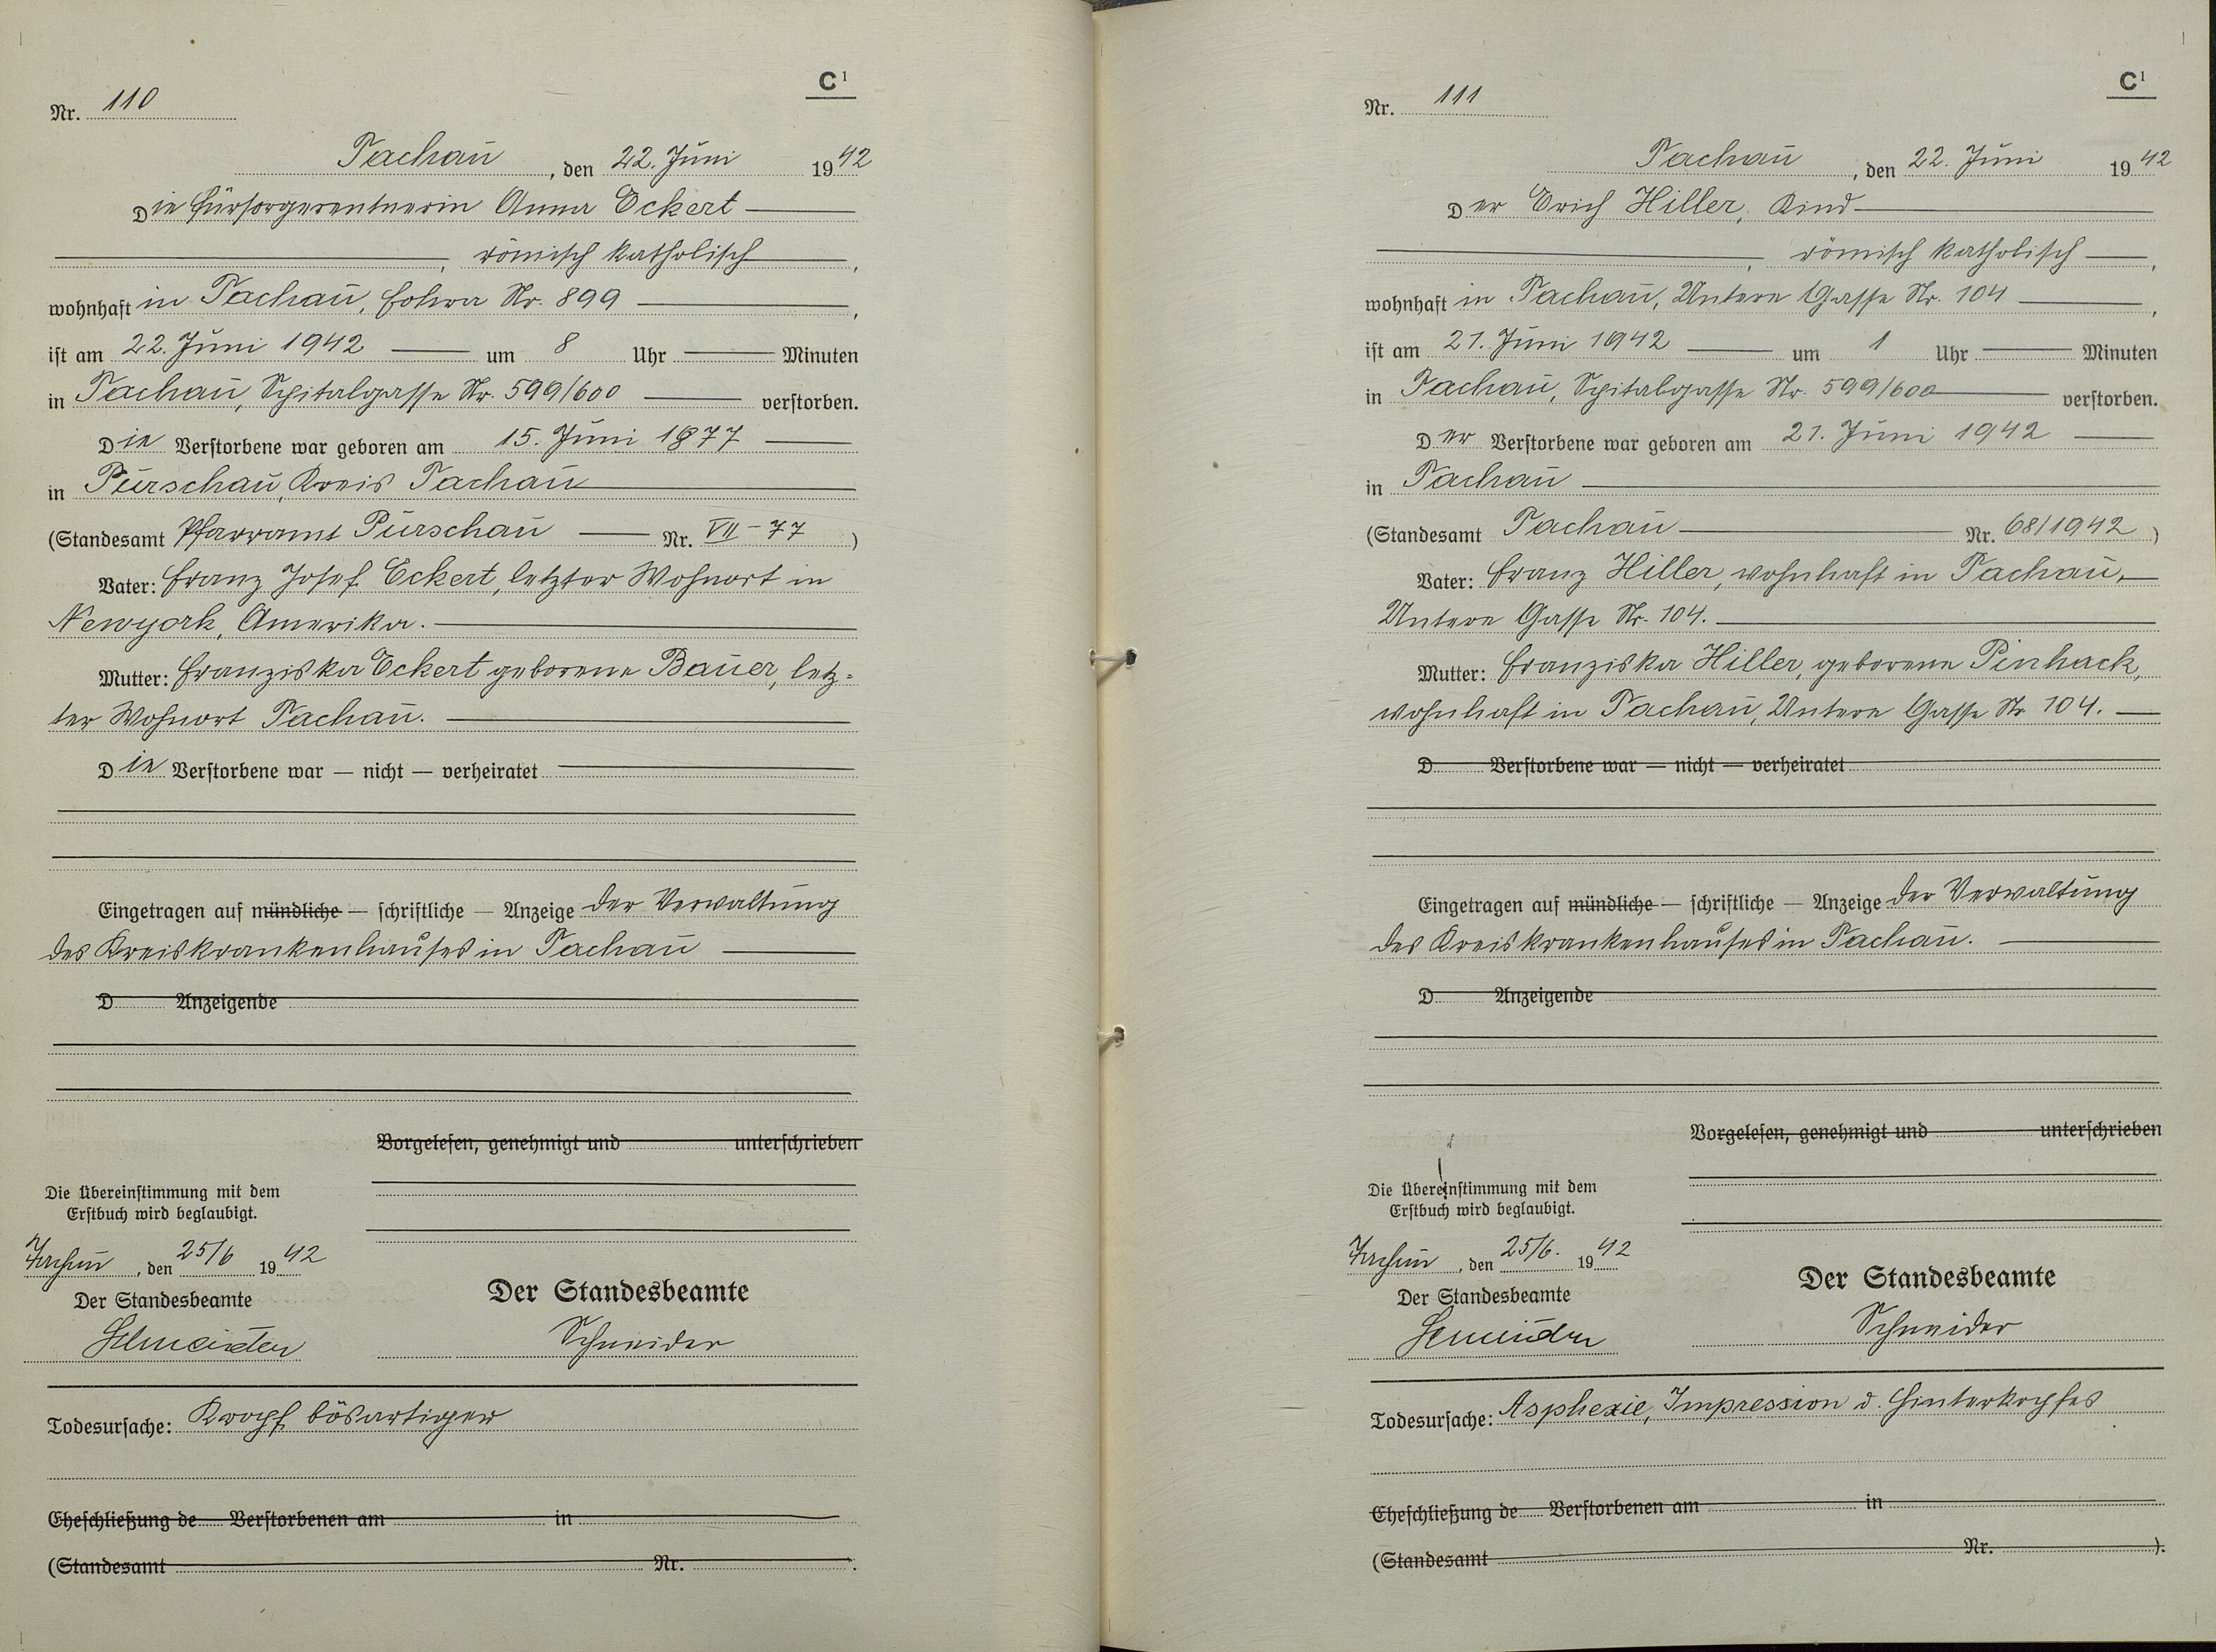 C¹
Nr. 110
Tachau, den 22. Juni 1942
Die Fürsorgerentnerin Anna Eckert
, römisch katholisch,
wohnhaft in Tachau, Folwa Nr. 899,
ist am 22. Juni 1942 um 8 Uhr Minuten
in Tachau, Spitalgasse Nr. 599/600 verstorben.
Die Verstorbene war geboren am 15. Juni 1877
in Purschau, Kreis Tachau
(Standesamt Pfarramt Purschau Nr. VII-77)
Vater: Franz Josef Eckert, letzter Wohnort in
Newyork, Amerika.
Mutter: Franziska Eckert geborene Bauer, letz-
ter Wohnort Tachau.
Die Verstorbene war — nicht — verheiratet
Eingetragen auf mündliche — schriftliche — Anzeige der Verwaltung
des Kreiskrankenhauses in Tachau
D Anzeigende
Vorgelesen, genehmigt und unterschrieben
Die Übereinstimmung mit dem
Erstbuch wird beglaubigt.
Tachau, den 25/6 1942
Der Standesbeamte
Schneider
Der Standesbeamte
Schneider
Todesursache: Kropf bösartiger
Eheschließung de Verstorbenen am in
(Standesamt Nr. .
C¹
Nr. 111
Tachau, den 22. Juni 1942
Der Erich Hiller, Kind
, römisch katholisch,
wohnhaft in Tachau, Untere Gasse Nr. 104,
ist am 21. Juni 1942 um 1 Uhr Minuten
in Tachau, Spitalgasse Nr. 599/600 verstorben.
Der Verstorbene war geboren am 21. Juni 1942
in Tachau
(Standesamt Tachau Nr. 68/1942)
Vater: Franz Hiller, wohnhaft in Tachau,
Untere Gasse Nr. 104.
Mutter: Franziska Hiller, geborene Pinhack,
wohnhaft in Tachau, Untere Gasse Nr 104.
D Verstorbene war — nicht — verheiratet
Eingetragen auf mündliche — schriftliche — Anzeige der Verwaltung
des Kreiskrankenhauses in Tachau.
D Anzeigende
Vorgelesen, genehmigt und unterschrieben
Die Übereinstimmung mit dem
Erstbuch wird beglaubigt.
Tachau, den 25/6. 1942
Der Standesbeamte
Schneider
Der Standesbeamte
Schneider
Todesursache: Asphexie, Impression d. Hinterkopfes
Eheschließung de Verstorbenen am in
(Standesamt Nr. ).